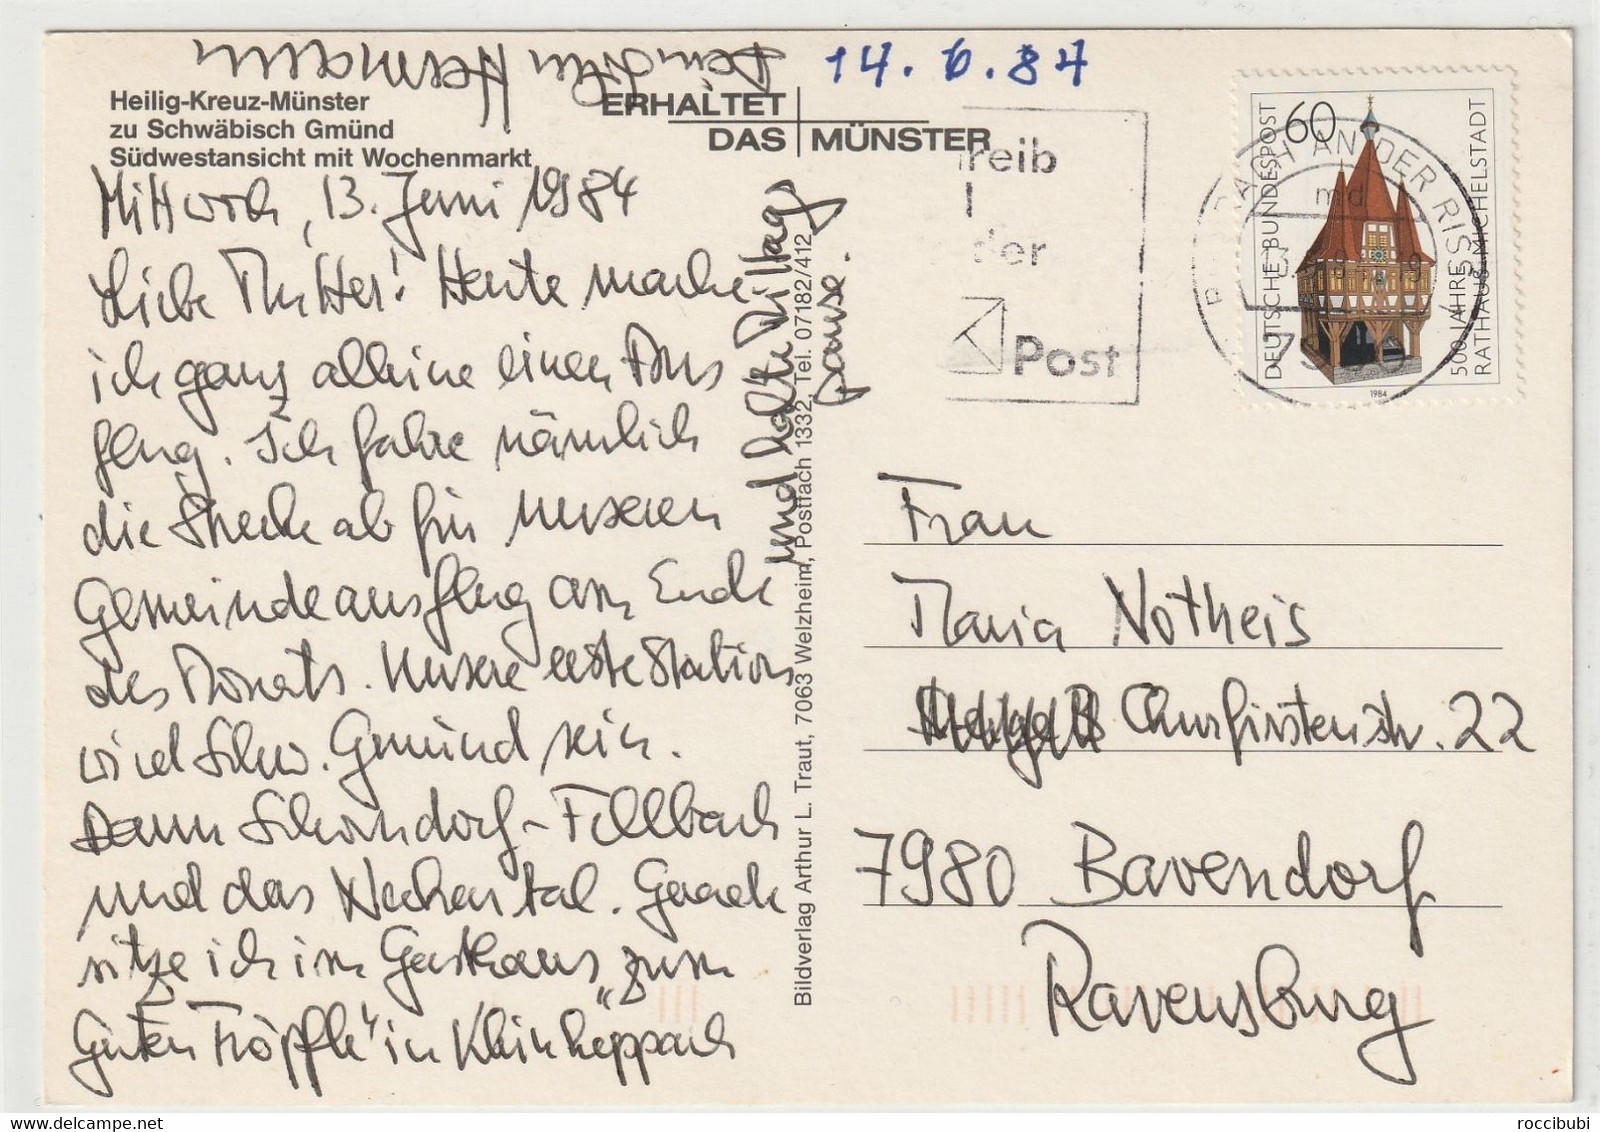 Hermann
14.6.84
Heilig-Kreuz-Münster
zu Schwäbisch Gmünd
Südwestansicht mit Wochenmarkt
ERHALTET
DAS MÜNSTER
Mittwoch, 13. Juni 1984
Liebe Mutter! Heute mache
ich ganz alleine einen Aus
flug. Ich fahre nämlich
die Strecke ab für unseren
Gemeindeausflug am Ende
des Monats. Unsere erste Station
wird Schw. Gmünd sein.
Dann Schorndorf - Fellbach
und das Neckartal. Gerade
sitze ich im Gasthaus „zum
Guten Tröpfle" in Kleinheppach
und halte Mittags
pause.
Bildverlag Arthur L. Traut, 7063 Welzheim, Postfach 1332, Tel. 07182/412
reib
der
Post
BIBERACH AN DER RISS
DEUTSCHE BUNDESPOST
60
500 JAHRE
RATHAUS MICHELSTADT
1984
Frau
Maria Notheis
Churfirstenstr. 22
7980 Bavendorf
Ravensburg
roccibubi